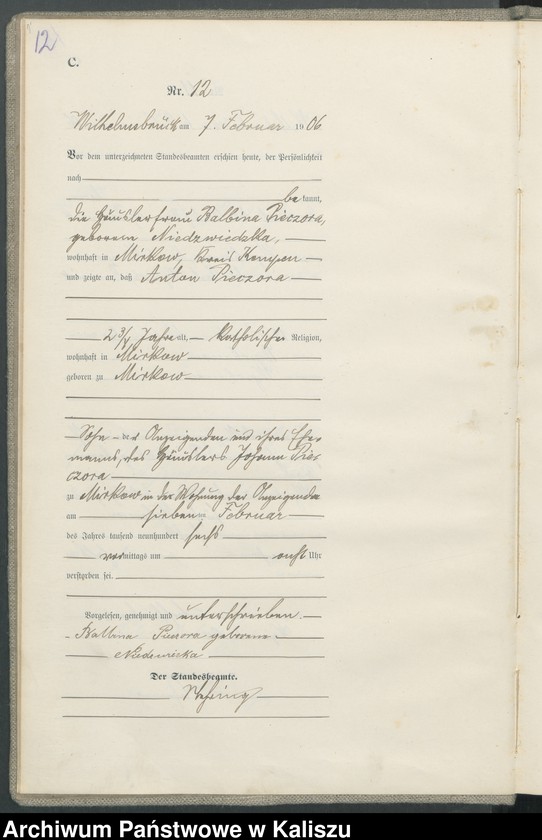 12
C.
Nr. 12
Wilhelmsbrück am 7. Februar 1906
Vor dem unterzeichneten Standesbeamten erschien heute, der Persönlichkeit
nach
bekannt,
die Häuslerfrau Balbina Pieczora,
geborene Niedzwiedzka,
wohnhaft in Mirkow, Kreis Kempen
und zeigte an, daß Anton Pieczora
2 3/4 Jahre alt, katholischer Religion,
wohnhaft in Mirkow
geboren zu Mirkow
Sohn der Anzeigenden und ihres Ehe-
manns, des Häuslers Johann Piec
zora
zu Mirkow in der Wohnung der Anzeigenden
am sieben Februar
des Jahres tausend neunhundert sechs
vormittags um acht Uhr
verstorben sei.
Vorgelesen, genehmigt und unterschrieben
Balbina geborene
Der Standesbeamte.
Archiwum Państwowe w Kaliszu